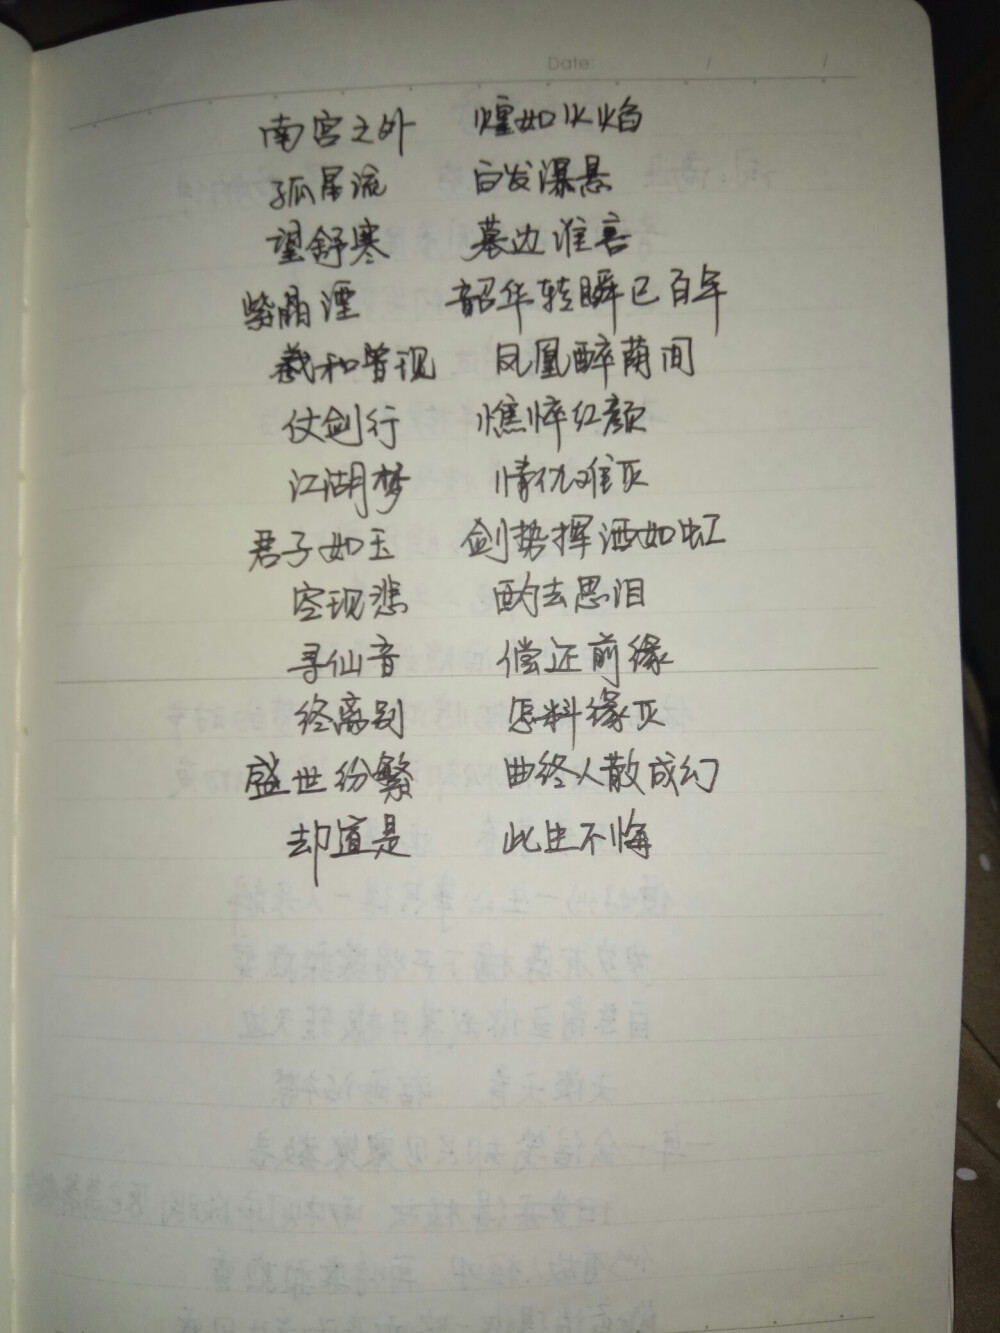 Date: / /
南宫之外 煌如火焰
孤星流 白发瀑悬
望舒寒 墓边谁害
紫晶湮 韶华转瞬已百年
羲和曾现 凤凰醉菊间
仗剑行 憔悴红颜
江湖梦 情仇难灭
君子如玉 剑势挥洒如虹
空现悲 酌去思泪
寻仙音 偿还前缘
终离别 怎料缘灭
盛世纷繁 曲终人散成幻
却道是 此生不悔